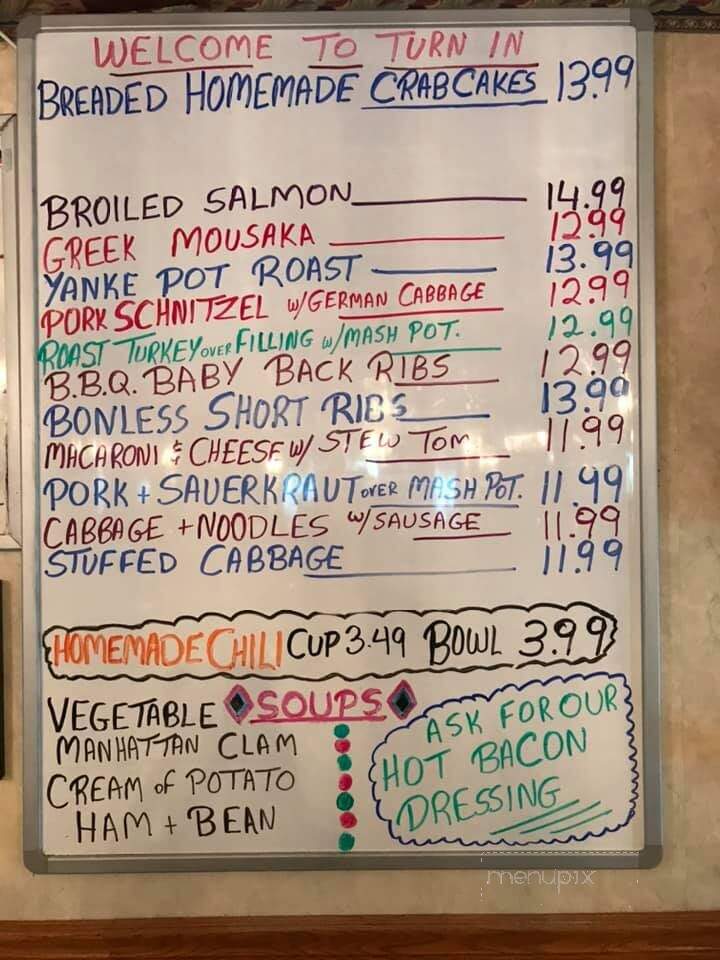 WELCOME TO TURN IN
BREADED HOMEMADE CRAB CAKES 13.99
BROILED SALMON 14.99
GREEK MOUSAKA 12.99
YANKE POT ROAST 13.99
PORK SCHNITZEL W/GERMAN CABBAGE 12.99
ROAST TURKEY OVER FILLING W/MASH POT. 12.99
B.B.Q. BABY BACK RIBS 12.99
BONLESS SHORT RIBS 13.99
MACARONI & CHEESE W/ STEW TOM 11.99
PORK + SAUERKRAUT OVER MASH POT. 11.99
CABBAGE + NOODLES W/SAUSAGE 11.99
STUFFED CABBAGE 11.99
HOMEMADE CHILI CUP 3.49 BOWL 3.99
SOUPS
VEGETABLE
MANHATTAN CLAM
CREAM of POTATO
HAM + BEAN
ASK FOR OUR
HOT BACON
DRESSING
menupix